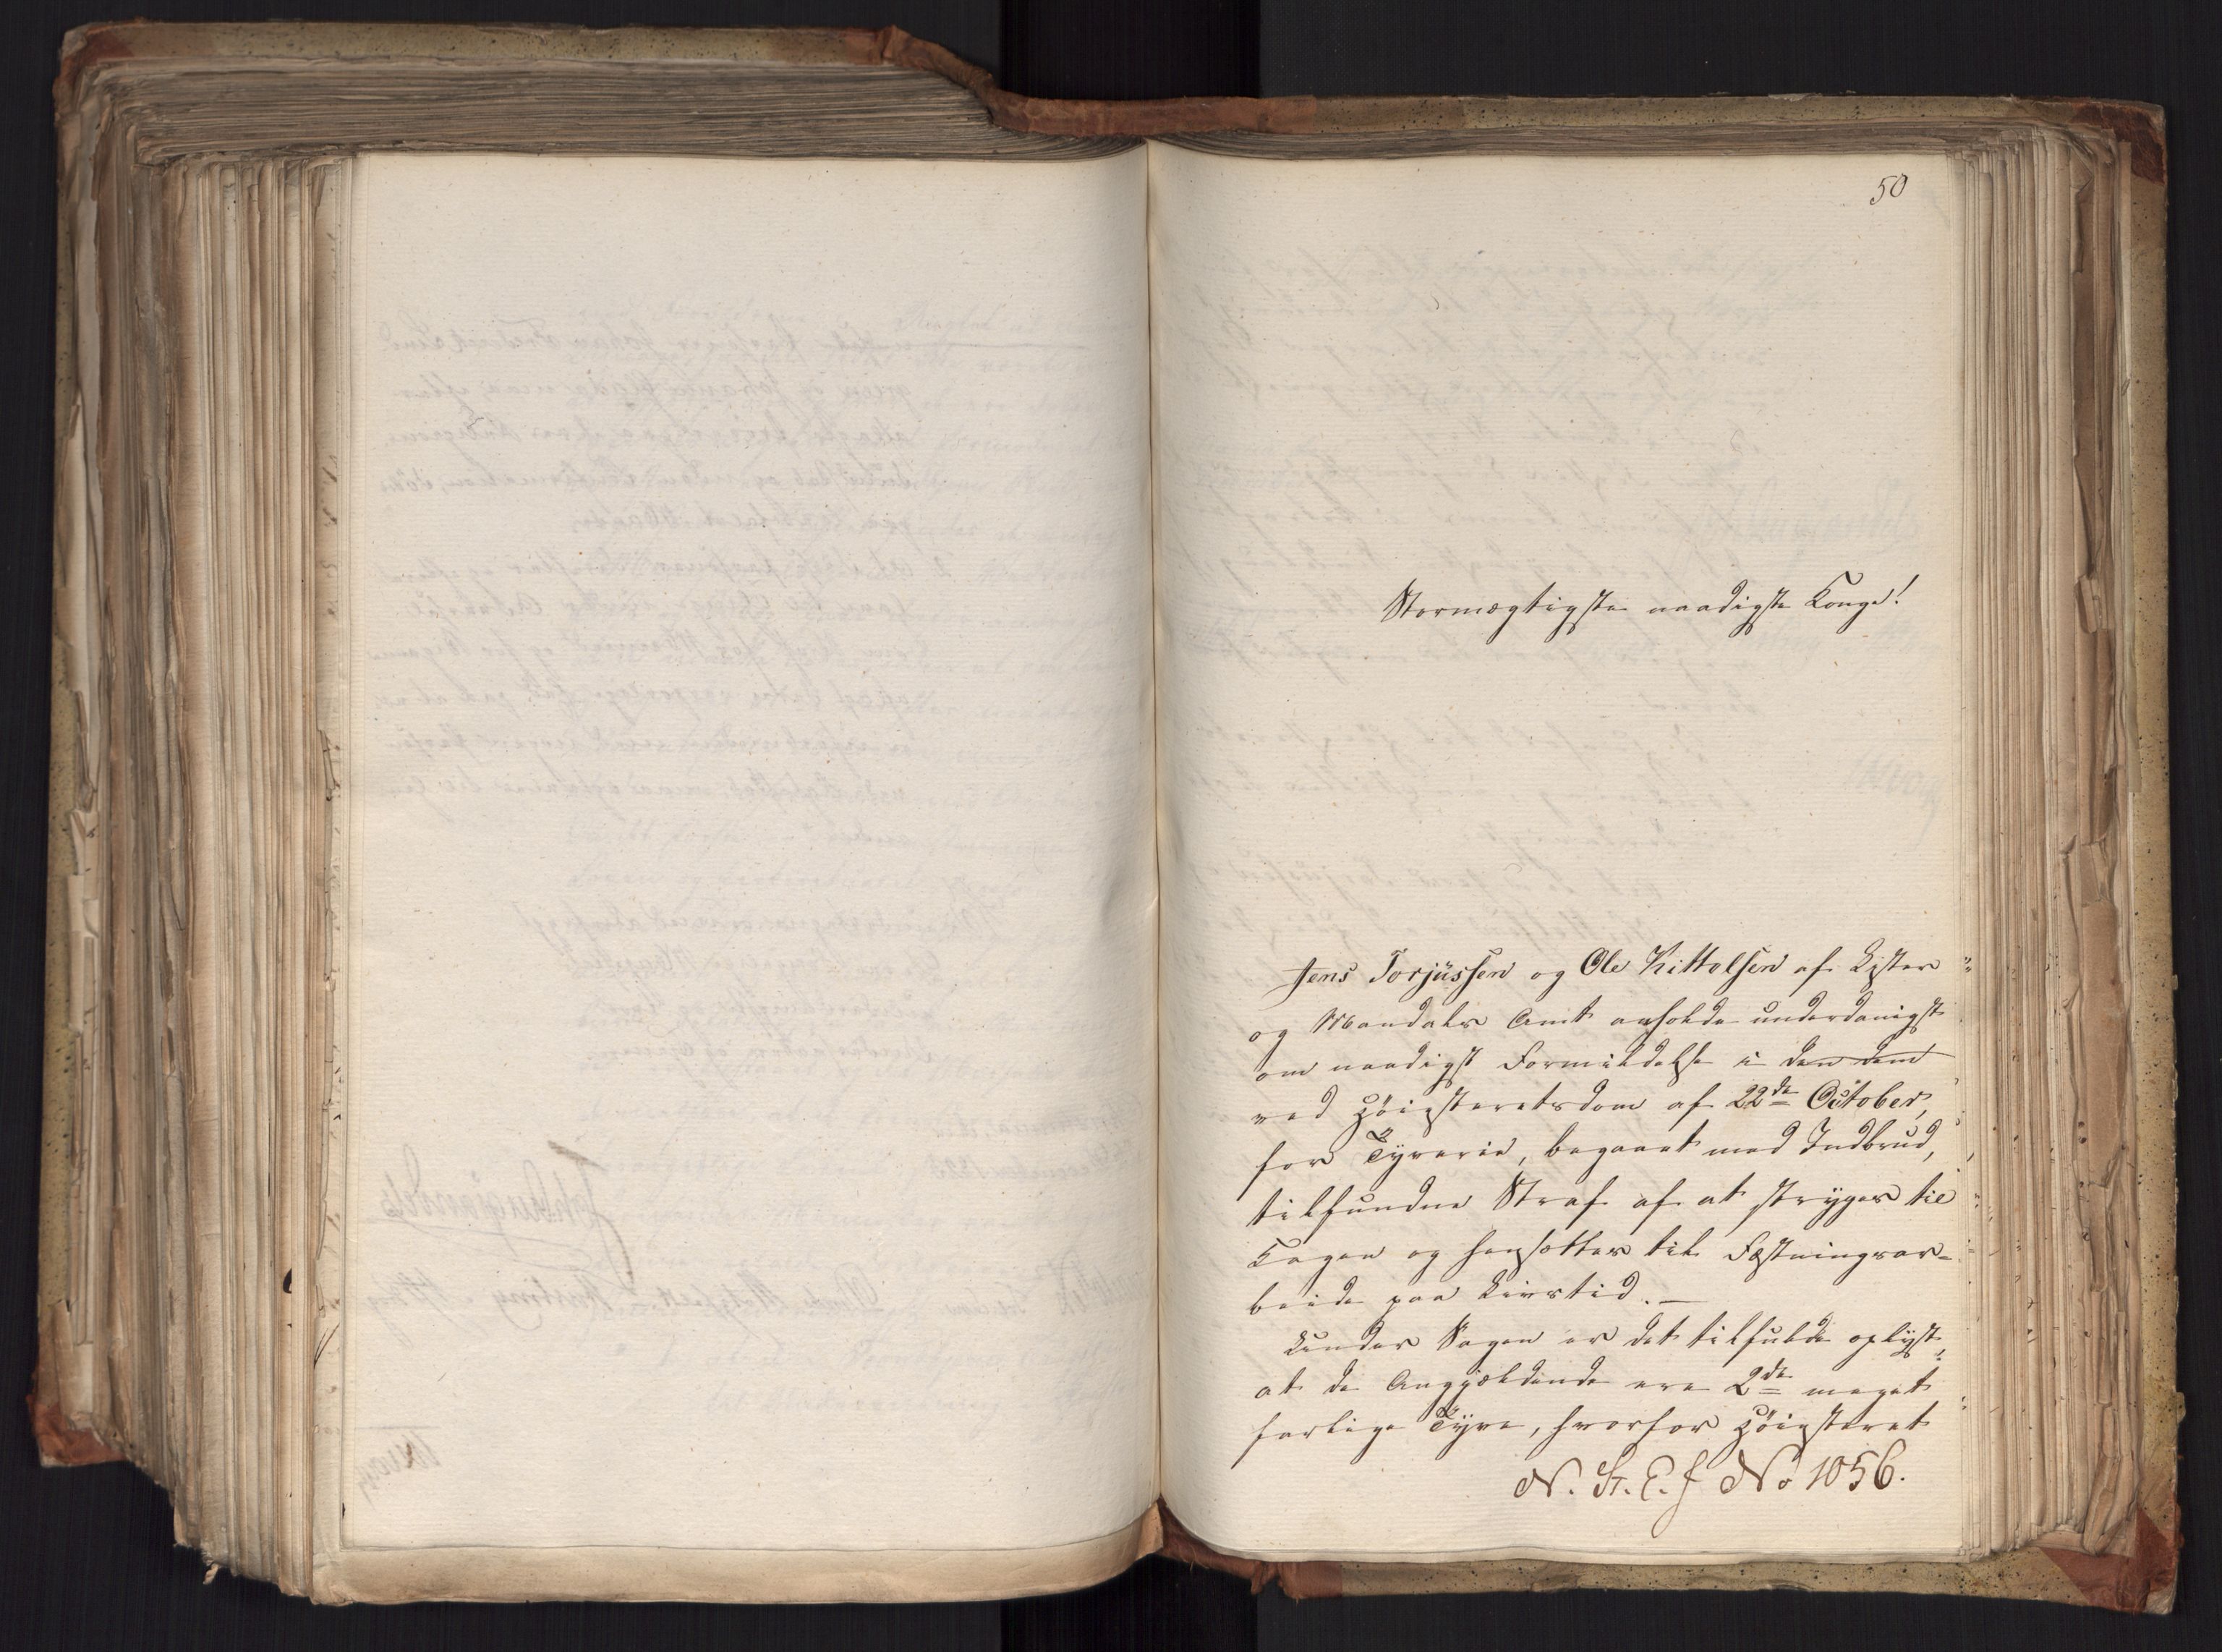 50
Stormægtigste naadigste Konge!
Jens Torjüssen og Ole Kittelsen af Lister
og Mandals Amt ansøkde underdanigst
om naadigst Formildelse i den dem
ved Höiesteretsdom af 22de October,
for Tyverie, begaaet med Indbrud,
tilfundne Straf af at stryges til
Kagen og hensættes til Fæstningsar=
beide paa Livstid. —
Under Sagen er det tilfulde oplyst,
at de Angjældende ere 2de meget
farlige Tyve, hvorfor Höiesteret
N. St. E. f No 1056.